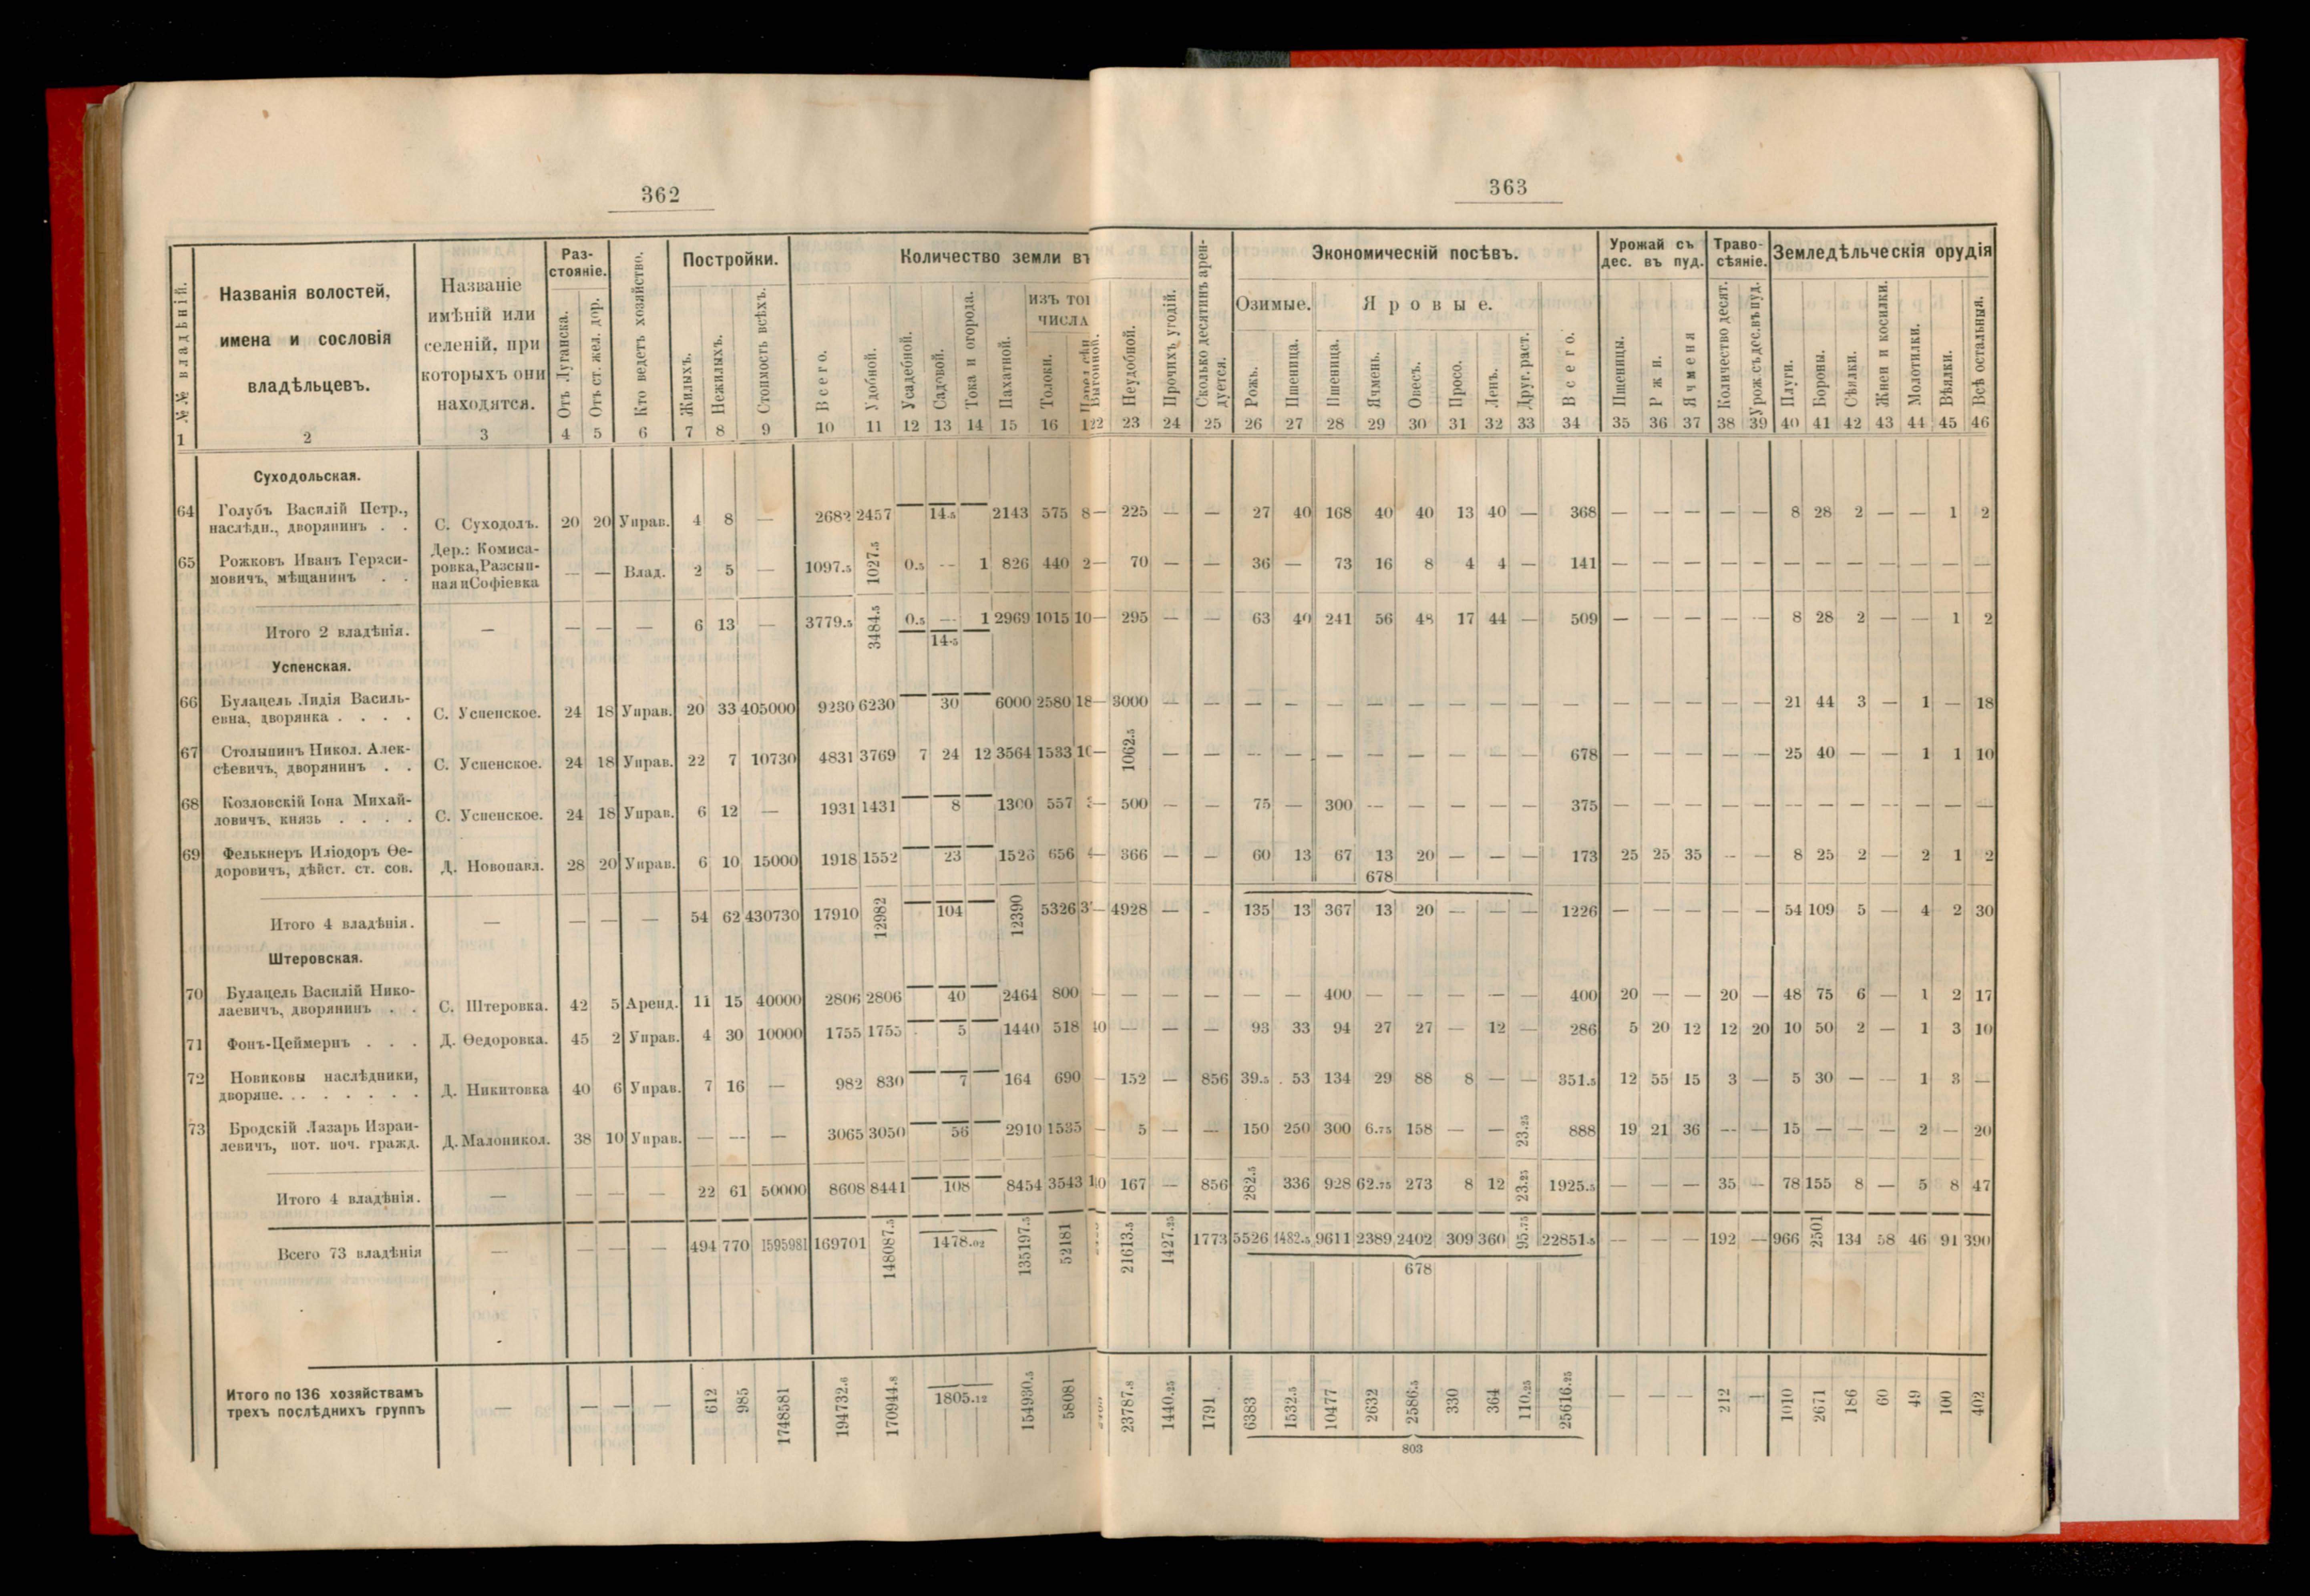 362
363
№№ владѣній.
Названія волостей,
имена и сословія
владѣльцевъ.
Названіе
имѣній или
селеній, при
которыхъ они
находятся.
Раз-
стояніе.
Отъ Луганска.
Отъ ст. жел. дор.
Кто ведетъ хозяйство.
Постройки.
Жилыхъ.
Нежилыхъ.
Стоимость всѣхъ.
Количество земли въ
Всего.
Удобной.
Усадебной.
Садовой.
Тока и огорода.
Пахатной.
изъ
числа
Толоки.
Выгонной.
Неудобной.
Прочихъ угодій.
Сколько десятинъ арен-
дуется.
Экономическій посѣвъ.
Озимые.
Яровые.
Рожь.
Пшеница.
Пшеница.
Ячмень.
Овесъ.
Просо.
Ленъ.
Друг. раст.
Всего.
Урожай съ
дес. въ пуд.
Пшеницы.
Ржи.
Ячменя
Траво-
сѣяніе.
Количество десят.
Урож. съ дес. въ пуд.
Земледѣльческія орудія
Плуги.
Бороны.
Сѣялки.
Жнеи и косилки.
Молотилки.
Вѣялки.
Всѣ остальныя.
1 2 3 4 5 6 7 8 9 10 11 12 13 14 15 16 22 23 24 25 26 27 28 29 30 31 32 33 34 35 36 37 38 39 40 41 42 43 44 45 46
Суходольская.
64 Голубъ Василій Петр.,
наслѣдн., дворянинъ . . С. Суходолъ. 20 20 Управ. 4 8 — 2682 2457 — 14.5 — 2143 575 8 — 225 — — 27 40 168 40 40 13 40 — 368 — — — — — 8 28 2 — — 1 2
65 Рожковъ Иванъ Гераси-
мовичъ, мѣщанинъ . .
Дер.: Комиса-
ровка, Разсып-
ная и Софіевка
— — Влад. 2 5 — 1097.5 1027.5 0.5 — 1 826 440 2 — 70 — — 36 — 73 16 8 4 4 — 141 — — — — — — — — — — — —
Итого 2 владѣнія. — — — — 6 13 — 3779.5 3484.5 0.5 — 1 2969 1015 10 — 295 — — 63 40 241 56 48 17 44 — 509 — — — — — 8 28 2 — — 1 2
14.5
Успенская.
66 Булацель Лидія Василь-
евна, дворянка . . . . С. Успенское. 24 18 Управ. 20 33 405000 9230 6230 — 30 — 6000 2580 18 — 3000 — — — — — — — — — — — — — — — — 21 44 3 — 1 — 18
67 Столыпинъ Никол. Алек-
сѣевичъ, дворянинъ . . С. Успенское. 24 18 Управ. 22 7 10730 4831 3769 7 24 12 3564 1533 — 1062.5 — — — — — — — — — — 678 — — — — — 25 40 — — 1 1 10
68 Козловскій Іона Михай-
ловичъ, князь . . . . С. Успенское. 24 18 Управ. 6 12 — 1931 1431 — 8 — 1300 557 — 500 — — 75 — 300 — — — — — 375 — — — — — — — — — — — —
69 Фелькнеръ Иліодоръ Ѳе-
доровичъ, дѣйст. ст. сов. Д. Новопавл. 28 20 Управ. 6 10 15000 1918 1552 — 23 — 1526 656 — 366 — — 60 13 67 13 20 — — — 173 25 25 35 — — 8 25 2 — 2 1 2
678
Итого 4 владѣнія. — — — — 54 62 430730 17910 12982 — 104 — 12390 5326 — 4928 — - 135 13 367 13 20 — — — 1226 — — — — — 54 109 5 — 4 2 30
Штеровская.
70 Булацель Василій Нико-
лаевичъ, дворянинъ . . С. Штеровка. 42 5 Аренд. 11 15 40000 2806 2806 — 40 — 2464 800 — — — — — — 400 — — — — — 400 20 — — 20 — 48 75 6 — 1 2 17
71 Фонъ-Цеймернъ . . . Д. Ѳедоровка. 45 2 Управ. 4 30 10000 1755 1755 5 1440 518 — — — 93 33 94 27 27 — 12 — 286 5 20 12 12 20 10 50 2 — 1 3 10
72 Новиковы наслѣдники,
дворяне. . . . . . . . Д. Никитовка 40 6 Управ. 7 16 — 982 830 — 7 — 164 690 — 152 — 856 39.5 53 134 29 88 8 — — 351.5 12 55 15 3 — 5 30 — — 1 3 —
73 Бродскій Лазарь Израи-
левичъ, пот. поч. гражд. Д. Малоникол. 38 10 Управ. — — — 3065 3050 — 56 — 2910 1535 — 5 — — 150 250 300 6.75 158 — — 23.25 888 19 21 36 — — 15 — — — 2 — 20
Итого 4 владѣнія. — — — — 22 61 50000 8608 8441 — 108 — 8454 3543 167 — 856 282.5 336 928 62.75 273 8 12 23.25 1925.5 — — — 35 — 78 155 8 — 5 8 47
Всего 73 владѣнія — — — — 494 770 1595981 169701 148087.5 1478.02 135197.5 52181 21613.5 1427.25 1773 5526 1482.5 9611 2389 2402 309 360 95.75 22851.5 — — — 192 — 966 2501 134 58 46 91 390
678
Итого по 136 хозяйствамъ
трехъ послѣднихъ группъ — — — — 612 985 1748581 194732.6 170944.8 1805.12 154930.5 58081 23787.8 1440.25 1791 6383 1532.5 10477 2632 2586.5 330 364 110.25 25616.25 — — — 212 — 1010 2671 186 60 49 100 402
803